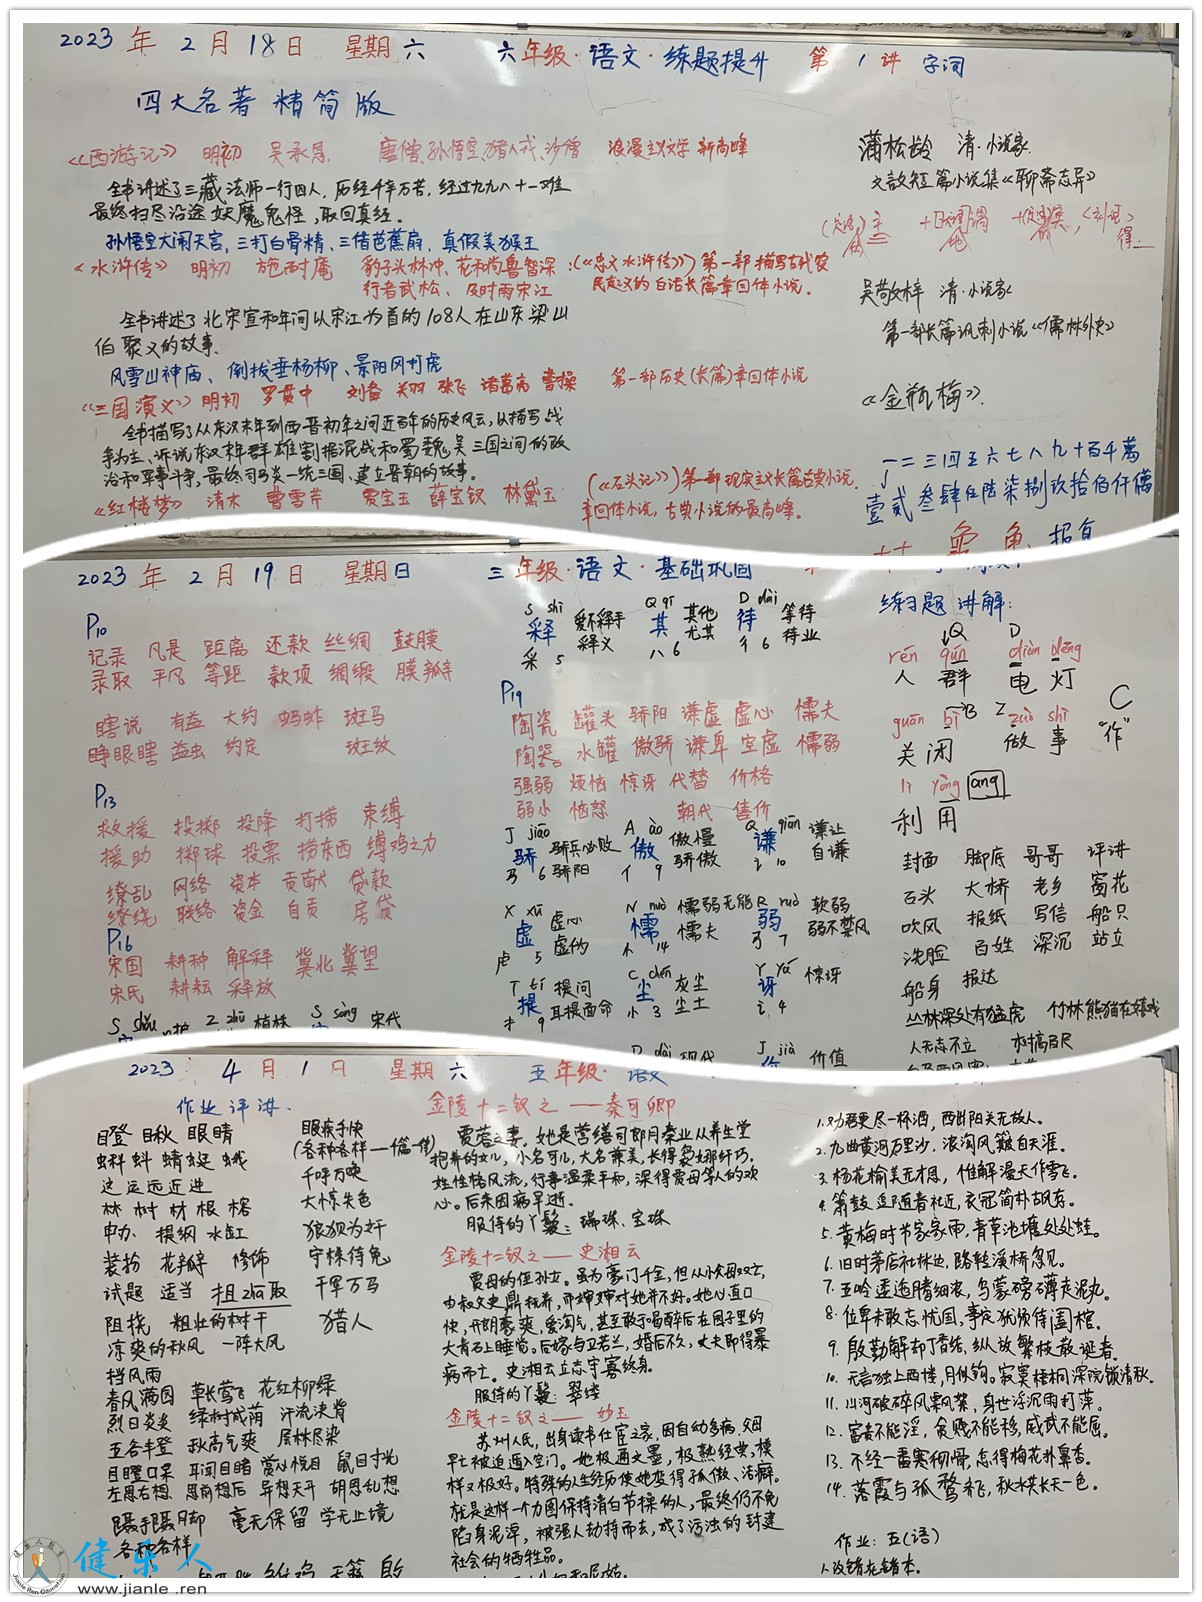 2023 年 2 月 18 日 星期六 六年级·语文·练题提升 第 1 讲 字词
四大名著 精简版
《西游记》 明初 吴承恩 唐僧、孙悟空、猪八戒、沙僧 浪漫主义文学 新高峰
全书讲述了三藏法师一行四人,历经千辛万苦,经过九九八十一难
最终扫尽沿途妖魔鬼怪,取回真经。
孙悟空大闹天宫,三打白骨精,三借芭蕉扇,真假美猴王
《水浒传》 明初 施耐庵 豹子头林冲、花和尚鲁智深
行者武松、及时雨宋江
(《忠义水浒传》)第一部描写古代农
民起义的白话长篇章回体小说。
全书讲述了北宋宣和年间以宋江为首的108人在山东梁山
伯聚义的故事。
风雪山神庙、倒拔垂杨柳、景阳冈打虎
《三国演义》 明初 罗贯中 刘备 关羽 张飞 诸葛亮 曹操 第一部历史(长篇)章回体小说
全书描写了从东汉末年到西晋初年之间近百年的历史风云,以描写战
争为主、诉说东汉末年群雄割据混战和蜀魏吴三国之间的政
治和军事斗争,最终司马炎一统三国、建立晋朝的故事。
《红楼梦》 清末 曹雪芹 贾宝玉 薛宝钗 林黛玉
(《石头记》)第一部现实主义长篇古典小说。
章回体小说,古典小说的最高峰。
蒲松龄 清·小说家
文言短篇小说集《聊斋志异》
吴敬梓 清·小说家
第一部长篇讽刺小说《儒林外史》
《金瓶梅》
一二三四五六七八九十百千萬
壹贰叁肆伍陆柒捌玖拾佰仟萬
2023 年 2 月 19 日 星期日 三年级·语文·基础巩固
P10
记录 凡是 距离 还款 丝绸 鼓膜
录取 平凡 等距 款项 绸缎 膜瓣
瞎说 有益 大约 蚂蚱 斑马
睁眼瞎 益虫 约定 斑纹
P13
救援 投掷 投降 打捞 束缚
援助 掷球 投票 捞东西 缚鸡之力
缭乱 网络 资本 贡献 贷款
缭绕 联络 资金 自贡 房贷
P16
宋国 耕种 解释 冀北 冀望
宋氏 耕耘 释放
S shǒu Z zhū 植株 S sòng 宋代
S shì Q qí D dài
释 爱不释手 其 其他 待 等待
释义 尤其 待业
采 5 八 6 彳 6
P19
陶瓷 罐头 骄阳 谦虚 虚心 懦夫
陶器 水罐 傲骄 谦卑 空虚 懦弱
强弱 烦恼 惊讶 代替 价格
弱小 恼怒 朝代 售价
J jiāo A ào Q qiān
骄 骄兵必败 傲 傲慢 谦 谦让
马 6 骄阳 亻 9 骄傲 讠 10 自谦
X xū N nuò R ruò
虚 虚心 懦 懦弱无能 弱 软弱
虍 5 虚伪 忄 14 懦夫 弓 7 弱不禁风
T tí C chén Y yà
提 提问 尘 灰尘 讶 惊讶
扌 9 耳提面命 小 3 尘土 讠 4
D dài 现代 J jià 价值
练习题 讲解:
Q D
rén qún diàn dēng
人 群 电 灯
guān bì B Z zuò shì C
关 闭 做 事 “作”
lì yòng ang
利 用
封面 脚底 哥哥 评讲
石头 大桥 老乡 窗花
吹风 报纸 写信 船只
洗脸 百姓 深沉 站立
船身 报达
丛林深处有猛虎 竹林熊猫在嬉戏
人无志不立 树高百尺
2023 4 月 1 日 星期六 五年级·语文
作业评讲
瞪 瞅 眼睛
蝌蚪 蜻蜓 蛾
这 运 远 近 进
林 树 材 根 榕
申办 提纲 水缸
装扮 花瓣 修饰
试题 适当
阻挠 粗壮的树干
凉爽的秋风 一阵大风
挡风雨
春风满园 草长莺飞 花红柳绿
烈日炎炎 绿树成荫 汗流浃背
五谷丰登 秋高气爽 层林尽染
目瞪口呆 耳闻目睹 赏心悦目 鼠目寸光
左思右想 思前想后 异想天开 胡思乱想
蹑手蹑脚 毫无保留 学无止境
各种各样
眼疾手快
(各种各样
千呼万唤
大惊失色
狼狈为奸
守株待兔
千军万马
猎人
金陵十二钗之——秦可卿
贾蓉之妻。她是营缮司郎中秦业从养生堂
抱养的女儿,小名可儿,大名兼美,长得袅娜纤巧。
性格风流,行事温柔平和,深得贾母等人的欢
心。后来因病早逝。
服侍的丫鬟:瑞珠、宝珠
金陵十二钗之——史湘云
贾母的侄孙女。虽为豪门千金,但从小父母双亡,
由叔父史鼎抚养,而婶婶对她并不好。她心直口
快,开朗豪爽,爱淘气,甚至敢于喝醉后在园子里的
大青石上睡觉。后嫁与卫若兰,婚后不久,丈夫即得暴
病而亡。史湘云立志守寡终身。
服侍的丫鬟:翠缕
金陵十二钗之——妙玉
苏州人氏,出身读书仕宦之家,因自幼多病,父母
早亡被迫遁入空门。她极通文墨,极熟经典,模
样又极好。特殊的人生经历使她变得孤傲、洁癖。
就是这样一个力图保持清白节操的人,最终仍不免
陷身泥淖,被强人劫持而去,成了污浊的封建
社会的牺牲品。
1.劝君更尽一杯酒,西出阳关无故人。
2.九曲黄河万里沙,浪淘风簸自天涯。
3.杨花榆荚无才思,惟解漫天作雪飞。
4.箫鼓追随春社近,衣冠简朴古风存。
5.黄梅时节家家雨,青草池塘处处蛙。
6.旧时茅店社林边,路转溪桥忽见。
7.五岭逶迤腾细浪,乌蒙磅礴走泥丸。
8.位卑未敢忘忧国,事定犹须待阖棺。
9.殷勤解却丁香结,纵放繁枝散诞春。
10.无言独上西楼,月似钩。寂寞梧桐深院锁清秋。
11.山河破碎风飘絮,身世浮沉雨打萍。
12.富贵不能淫,贫贱不能移,威武不能屈。
13.不经一番寒彻骨,怎得梅花扑鼻香。
14.落霞与孤鹜齐飞,秋水共长天一色。
作业:五(语)
健乐人
www.jianle.ren